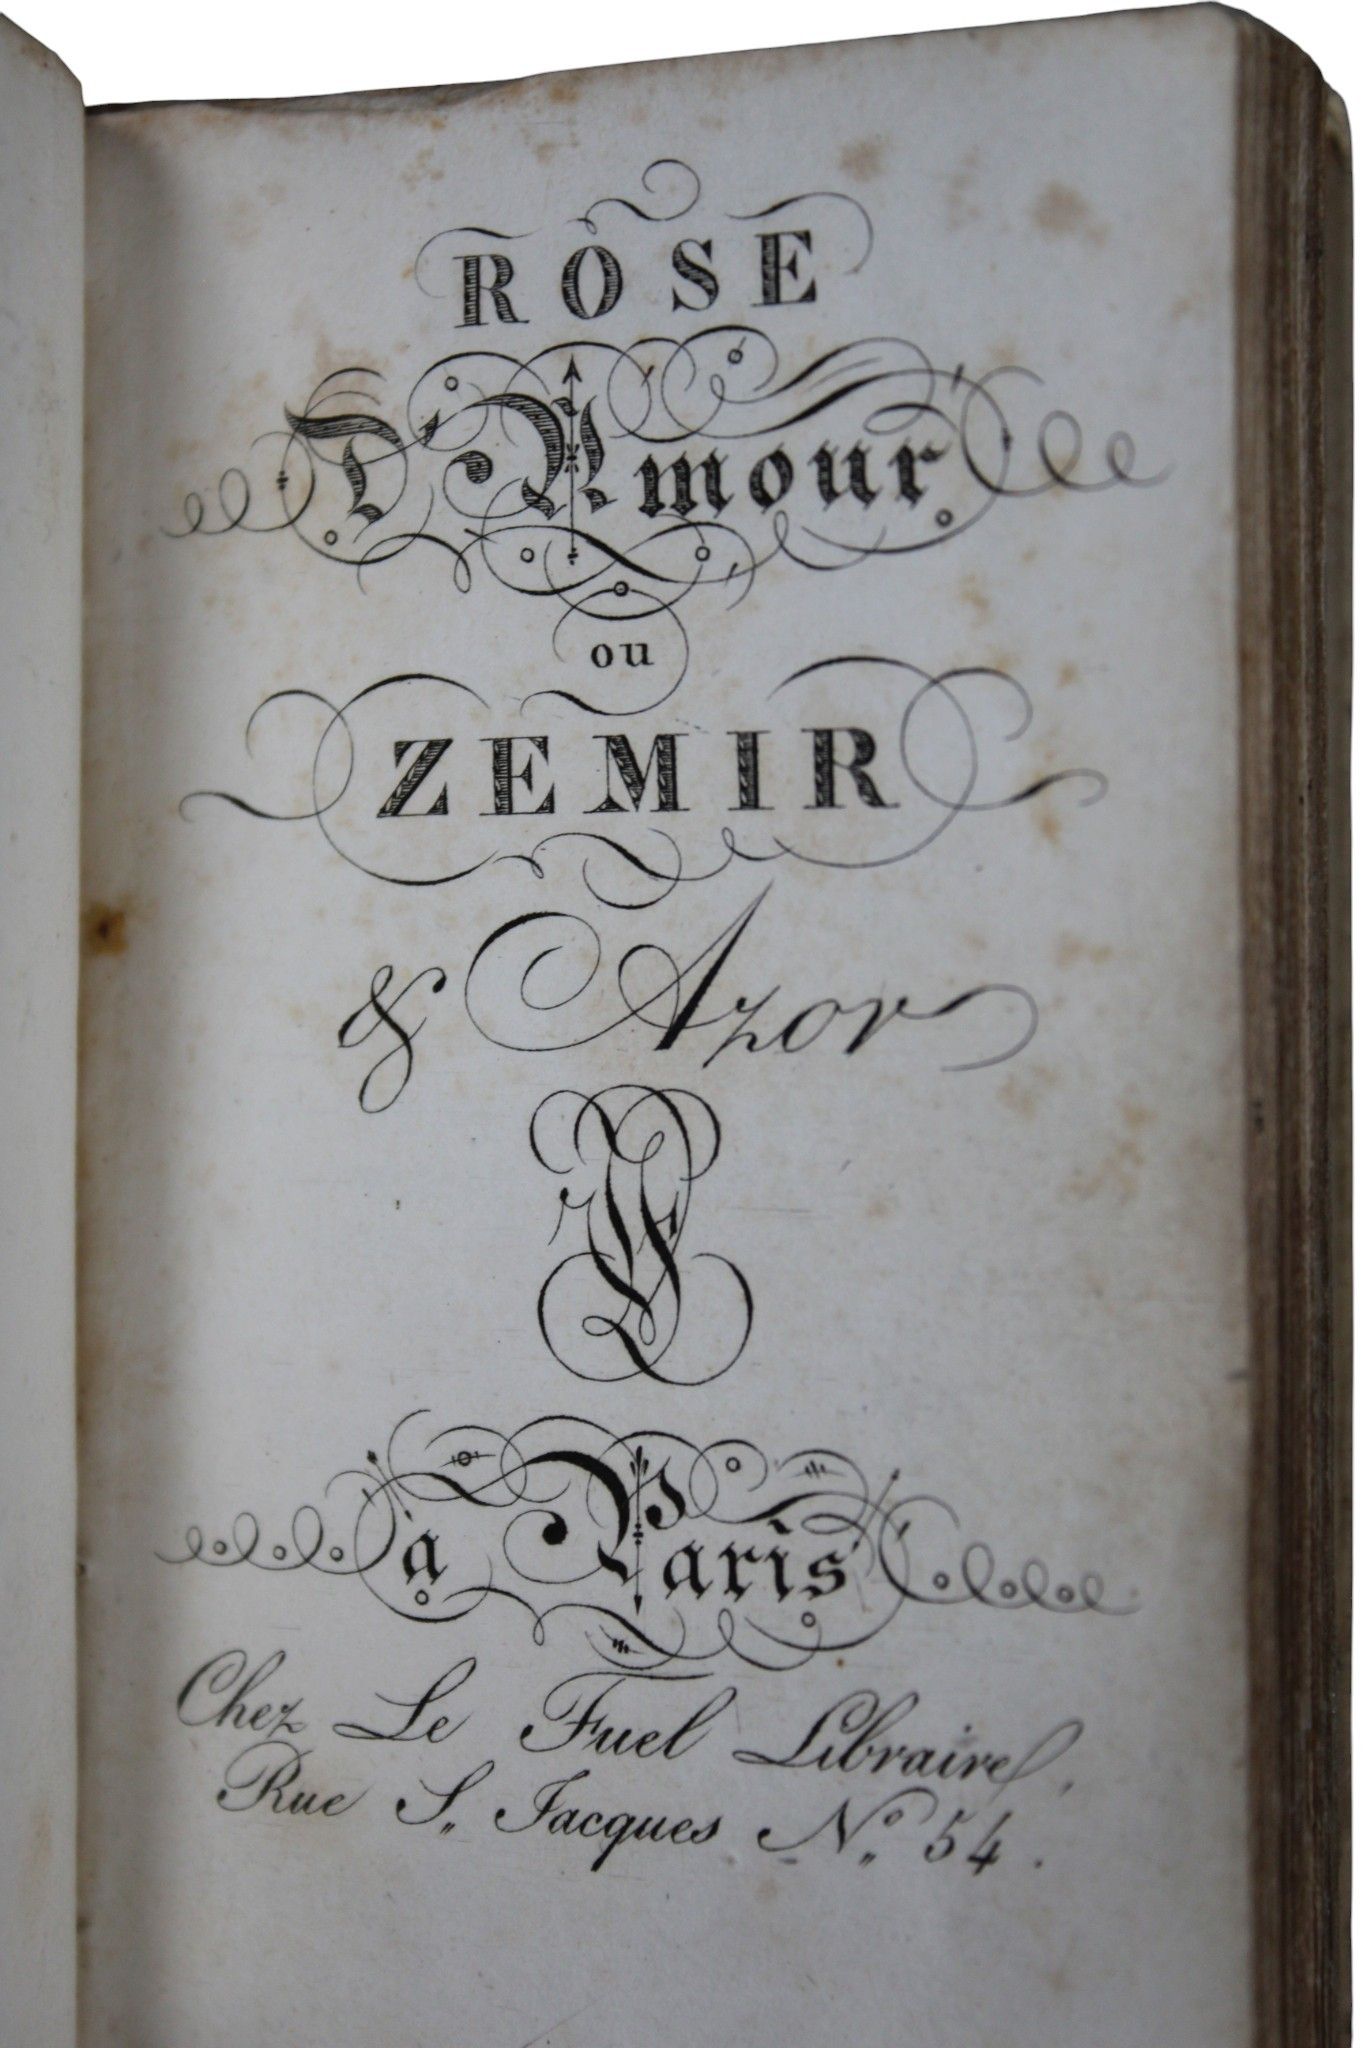 ROSE
D'Amour
ou
ZEMIR
& Azor
à Paris
Chez Le Fuel Libraire,
Rue S,, Jacques N,,º 54.